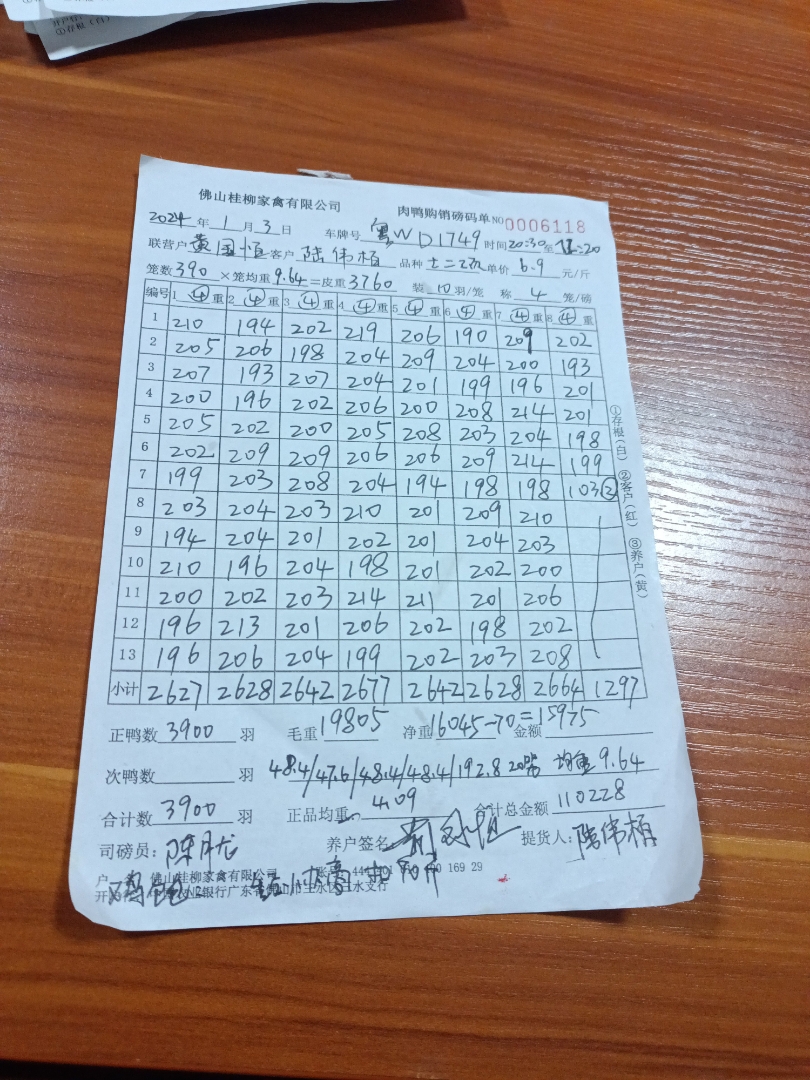 佛山桂柳家禽有限公司 肉鸭购销磅码单 NO 0006118
2024 年 1 月 3 日 车牌号 粤WD1749 时间 20:30 至 :20
联营户 黄国恒 客户 陆伟柏 品种 单价 6.9 元/斤
笼数 390 ×笼均重 9.64 =皮重 3760 装 10 羽/笼 称 4 笼/磅
编号 1 ④ 重 2 ④ 重 3 ④ 重 4 ④ 重 5 ④ 重 6 ④ 重 7 ④ 重 8 ④ 重
1 210 194 202 219 206 190 209 202
2 205 206 198 204 209 204 200 193
3 207 193 207 204 201 199 196 201
4 200 196 202 206 200 208 214 201
5 205 202 200 205 208 203 204 198
6 202 209 209 206 206 209 214 199
7 199 203 208 204 194 198 198 103②
8 203 204 203 210 201 209 210
9 194 204 201 202 201 204 203
10 210 196 204 198 201 202 200
11 200 202 203 214 211 201 206
12 196 213 201 206 202 198 202
13 196 206 204 199 202 203 208
小计 2627 2628 2642 2677 2642 2628 2664 1297
①存根(白) ②客户(红) ③养户(黄)
正鸭数 3900 羽 毛重 19805 净重 16045-70=15975 金额
次鸭数 羽 48.4/47.6/48.4/48.4/192.8 20 均重 9.64
合计数 3900 羽 正品均重 4.09 合计总金额 110228
司磅员: 养户签名 提货人: 陆伟柏
户 佛山桂柳家禽有限公司 169 29